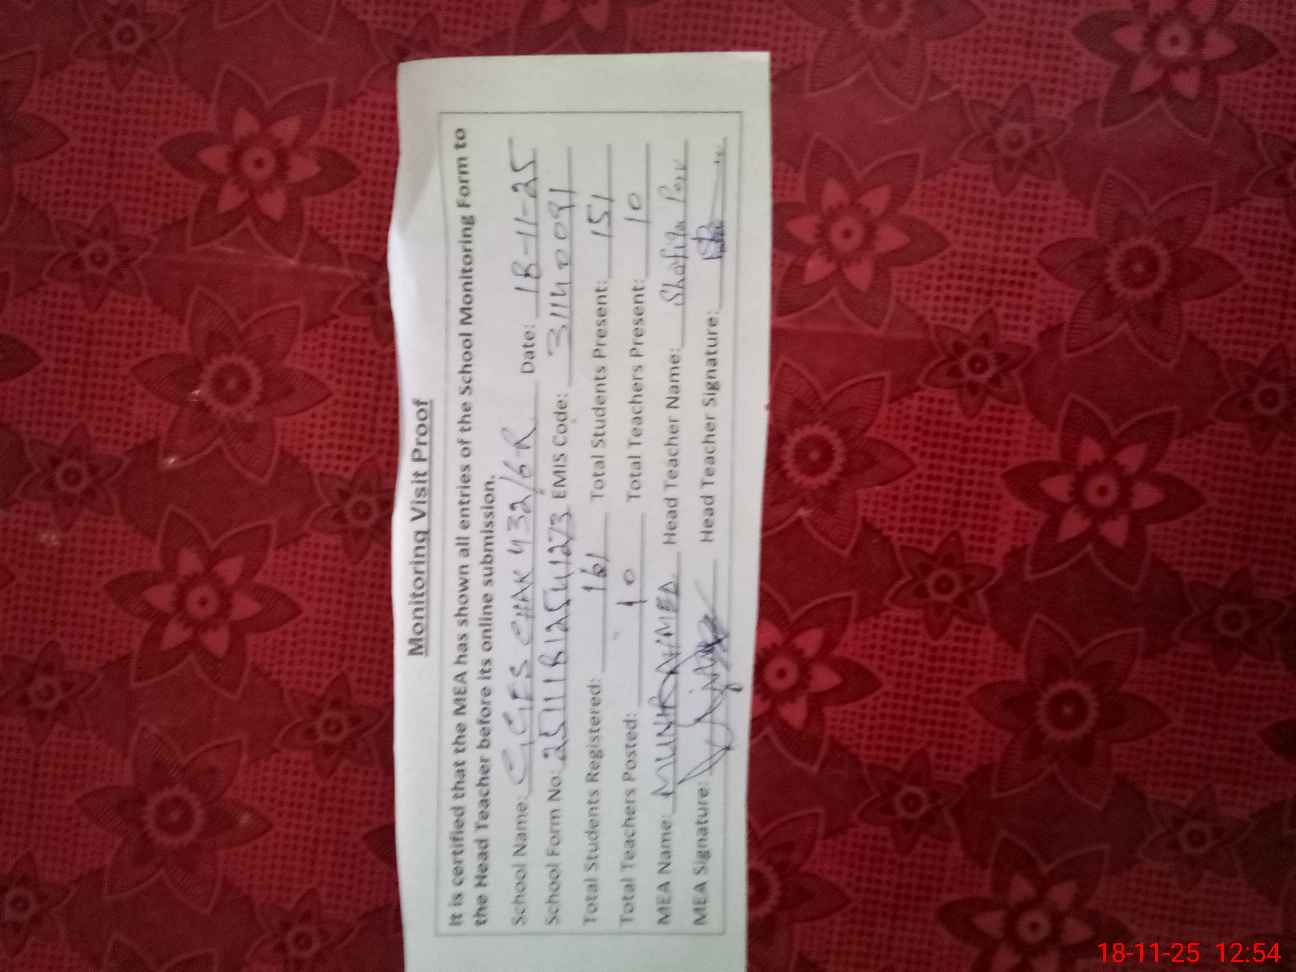 Monitoring Visit Proof
It is certified that the MEA has shown all entries of the School Monitoring Form to
the Head Teacher before its online submission.
School Name: GGES CHAK 432/6-R Date: 18-11-25
School Form No: EMIS Code: 31140091
Total Students Registered: 161 Total Students Present: 151
Total Teachers Posted: 10 Total Teachers Present: 10
MEA Name: Head Teacher Name: Shafiqa
MEA Signature: Head Teacher Signature:
18-11-25 12:54